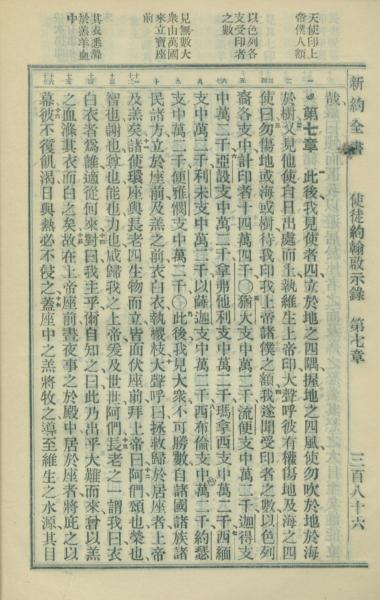 新約全書　使徒約翰啟示錄　第七章　三百八十六
天使印上
帝僕人額
以色列各
支受印者
之數
見無數大
眾由萬國
來立寶座
前
其衣悉滌
於羔羊血
中
哉
第七章　此後我見使者四立於地之四隅握地之四風使勿吹於地於海
於樹又見他使自日出處而上執維生上帝印大聲呼彼有權傷地及海之四
使曰勿傷地或海或樹待我印我上帝諸僕之額我遂聞受印者之數以色列
裔各支中計印者十四萬四千〇猶大支中萬二千流便支中萬二千迦得支
中萬二千亞設支中萬二千拿弗他利支中萬二千瑪拿西支中萬二千西緬
支中萬二千利未支中萬二千以薩迦支中萬二千西布倫支中萬二千約瑟
支中萬二千便雅憫支中萬二千〇此後我見大眾不可勝數自諸國諸族諸
民諸方立於座前及羔之前衣白衣執椶枝大聲呼曰拯救歸於居座者上帝
及羔矣諸使環座與長老四生物而立皆面伏座前拜上帝曰阿們頌也榮也
智也謝也尊也能也力也咸歸我之上帝爰及世世阿們長老之一謂我曰衣
白衣者爲誰適從何來對曰我主乎爾自知之曰此乃出乎大難而來曾以羔
之血滌其衣而白之矣故在上帝座前晝夜事之於殿中居於座者將庇之以
幕彼不復飢渴日與熱必不侵之蓋座中之羔將牧之導至維生之水源其目